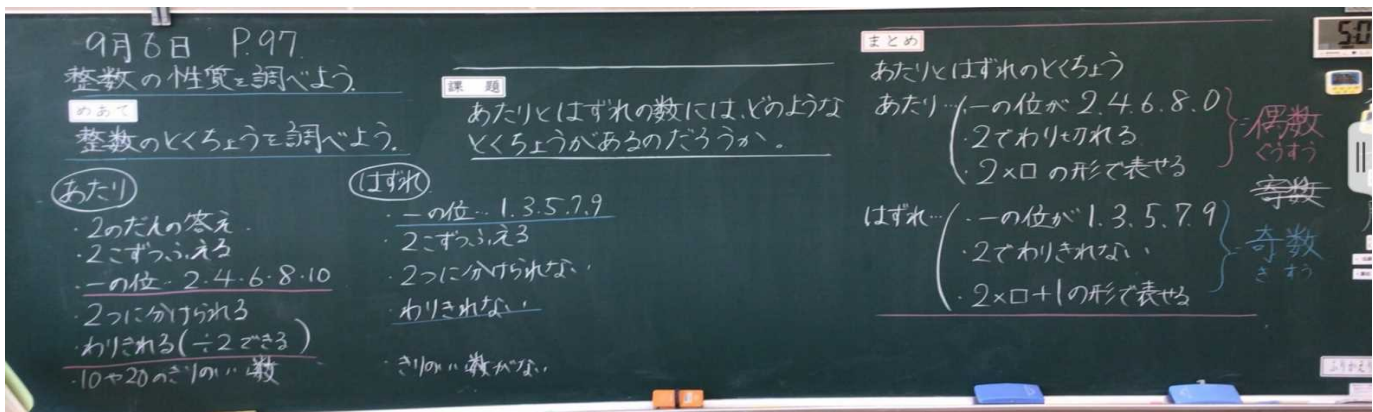 9月6日 P.97
整数の性質を調べよう.
めあて
整数のとくちょうを調べよう.
あたり
・2のだんの答え
・2こずつふえる
・一の位‥2・4・6・8・10
・2つに分けられる
・わりきれる(÷2できる)
・10や20のきりのいい数
はずれ
・一の位‥1.3.5.7.9
・2こずつふえる
・2つに分けられない
・わりきれない
・きりのいい数がない
課題
あたりとはずれの数には、どのような
とくちょうがあるのだろうか。
まとめ
あたりとはずれのとくちょう
あたり…・一の位が2.4.6.8.0
・2でわり切れる
・2×□の形で表せる
=偶数
ぐうすう
はずれ…・一の位が1.3.5.7.9
・2でわりきれない
・2×□+1の形で表せる
=奇数
きすう
ふりかえり